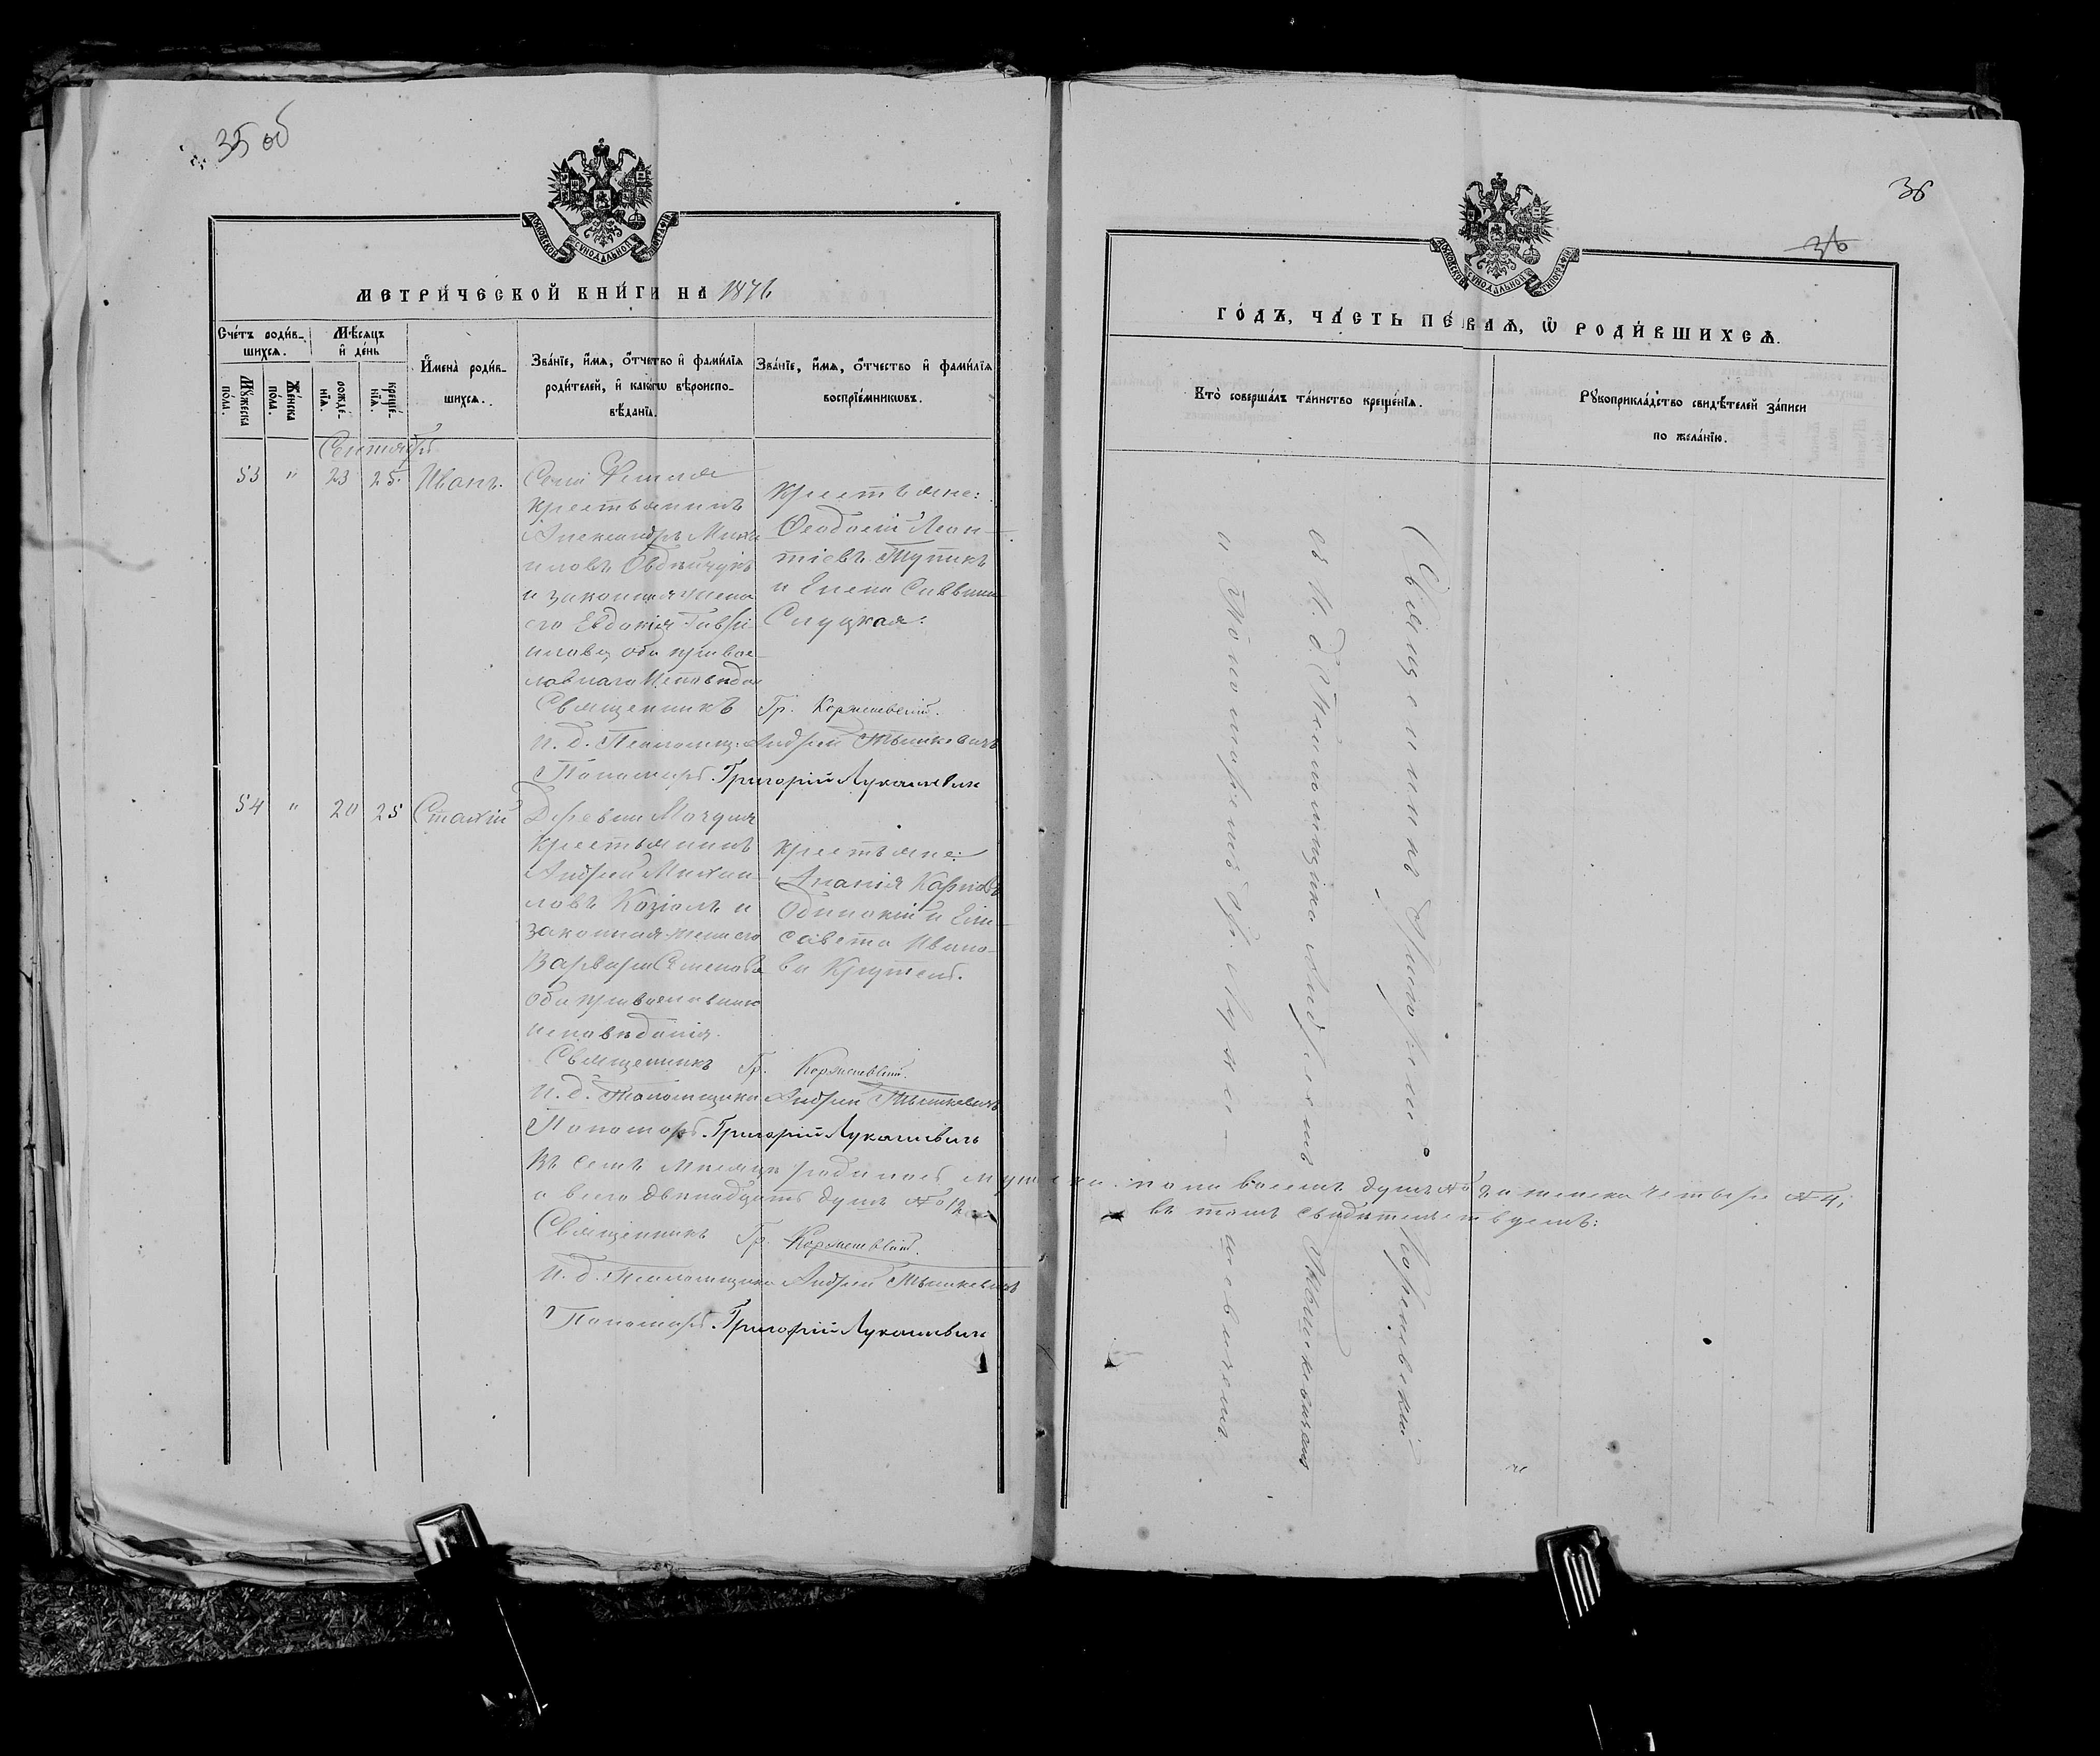 35 об
МОСКОВСКОЙ СѴНОДАЛЬНОЙ ТИПОГРАФІИ
МЕТРИ́ЧЕСКОЙ КНИ́ГИ НА 1876
Сче́тъ роди́в-
шихсѧ.
Мѣ́сѧцъ
и҆ де́нь
Мꙋ́жеска по́ла.
Же́нска по́ла.
рожде́-нїѧ.
креще́-нїѧ.
И҆мена̀ роди́в-
шихсѧ.
Зва́нїе, и҆́мѧ, ѻ҆́тчетво и҆ фами́лїѧ
роди́телей, и҆ како́гѡ вѣроиспо-
вѣ́данїѧ.
Зва́нїе, и҆́мѧ, ѻ҆́тчество и҆ фами́лїѧ
воспрїе́мникѡвъ.
Сентябрь
53 " 23 25. Иванъ.
крестьянинъ
Александръ Михаи
иловъ
и законная жена
его Евдокія Гаври
илова, оба правос-
лавнаго Исповѣда
Крестьяне:
Ѳеодосій Леон-
тіевъ Тупикъ
и Елена Саввина
Слуцкая.
Священникъ Гр.
И. д. Псаломщ. Андрей Тышкевичъ
Пономарь Григорій Лукашевичъ
54 " 20 25 Стахій
Деревни
крестьянинъ
Андрей Михаи-
ловъ Козіолъ и
законная жена его
Варвара Семенова
оба православнаго
исповѣданія.
Крестьяне:
Ананія Карповъ
Одинокій и Ели-
савета Ивано-
ва
Священникъ Гр.
И. д. Псаломщика Андрей Тышкевичъ
Пономарь Григорій Лукашевичъ
Въ семъ мѣсяцѣ родилось мужеска пола восемь душъ № 8, а женска четыре № 4;
а всего двѣнадцать душъ № 12 въ томъ свидѣтельствуемъ:
Священникъ Гр.
И. д. Псаломщика Андрей Тышкевичъ
Пономарь Григорій Лукашевичъ
36
36
МОСКОВСКОЙ СѴНОДАЛЬНОЙ ТИПОГРАФІИ
ГО́ДЪ, ЧА́СТЬ ПЕ́РВАѦ, Ѿ РОДИ́ВШИХСѦ.
Кто̀ соверша́лъ та́инство креще́нїѧ.
Рꙋкоприкла́дство свидѣ́телей за́писи
по жела́нїю.
Священникъ Григорій
съ И. д. Псаломщика Андреемъ Тышкевичемъ
и Пономаремъ Гр. Лукашевичемъ.